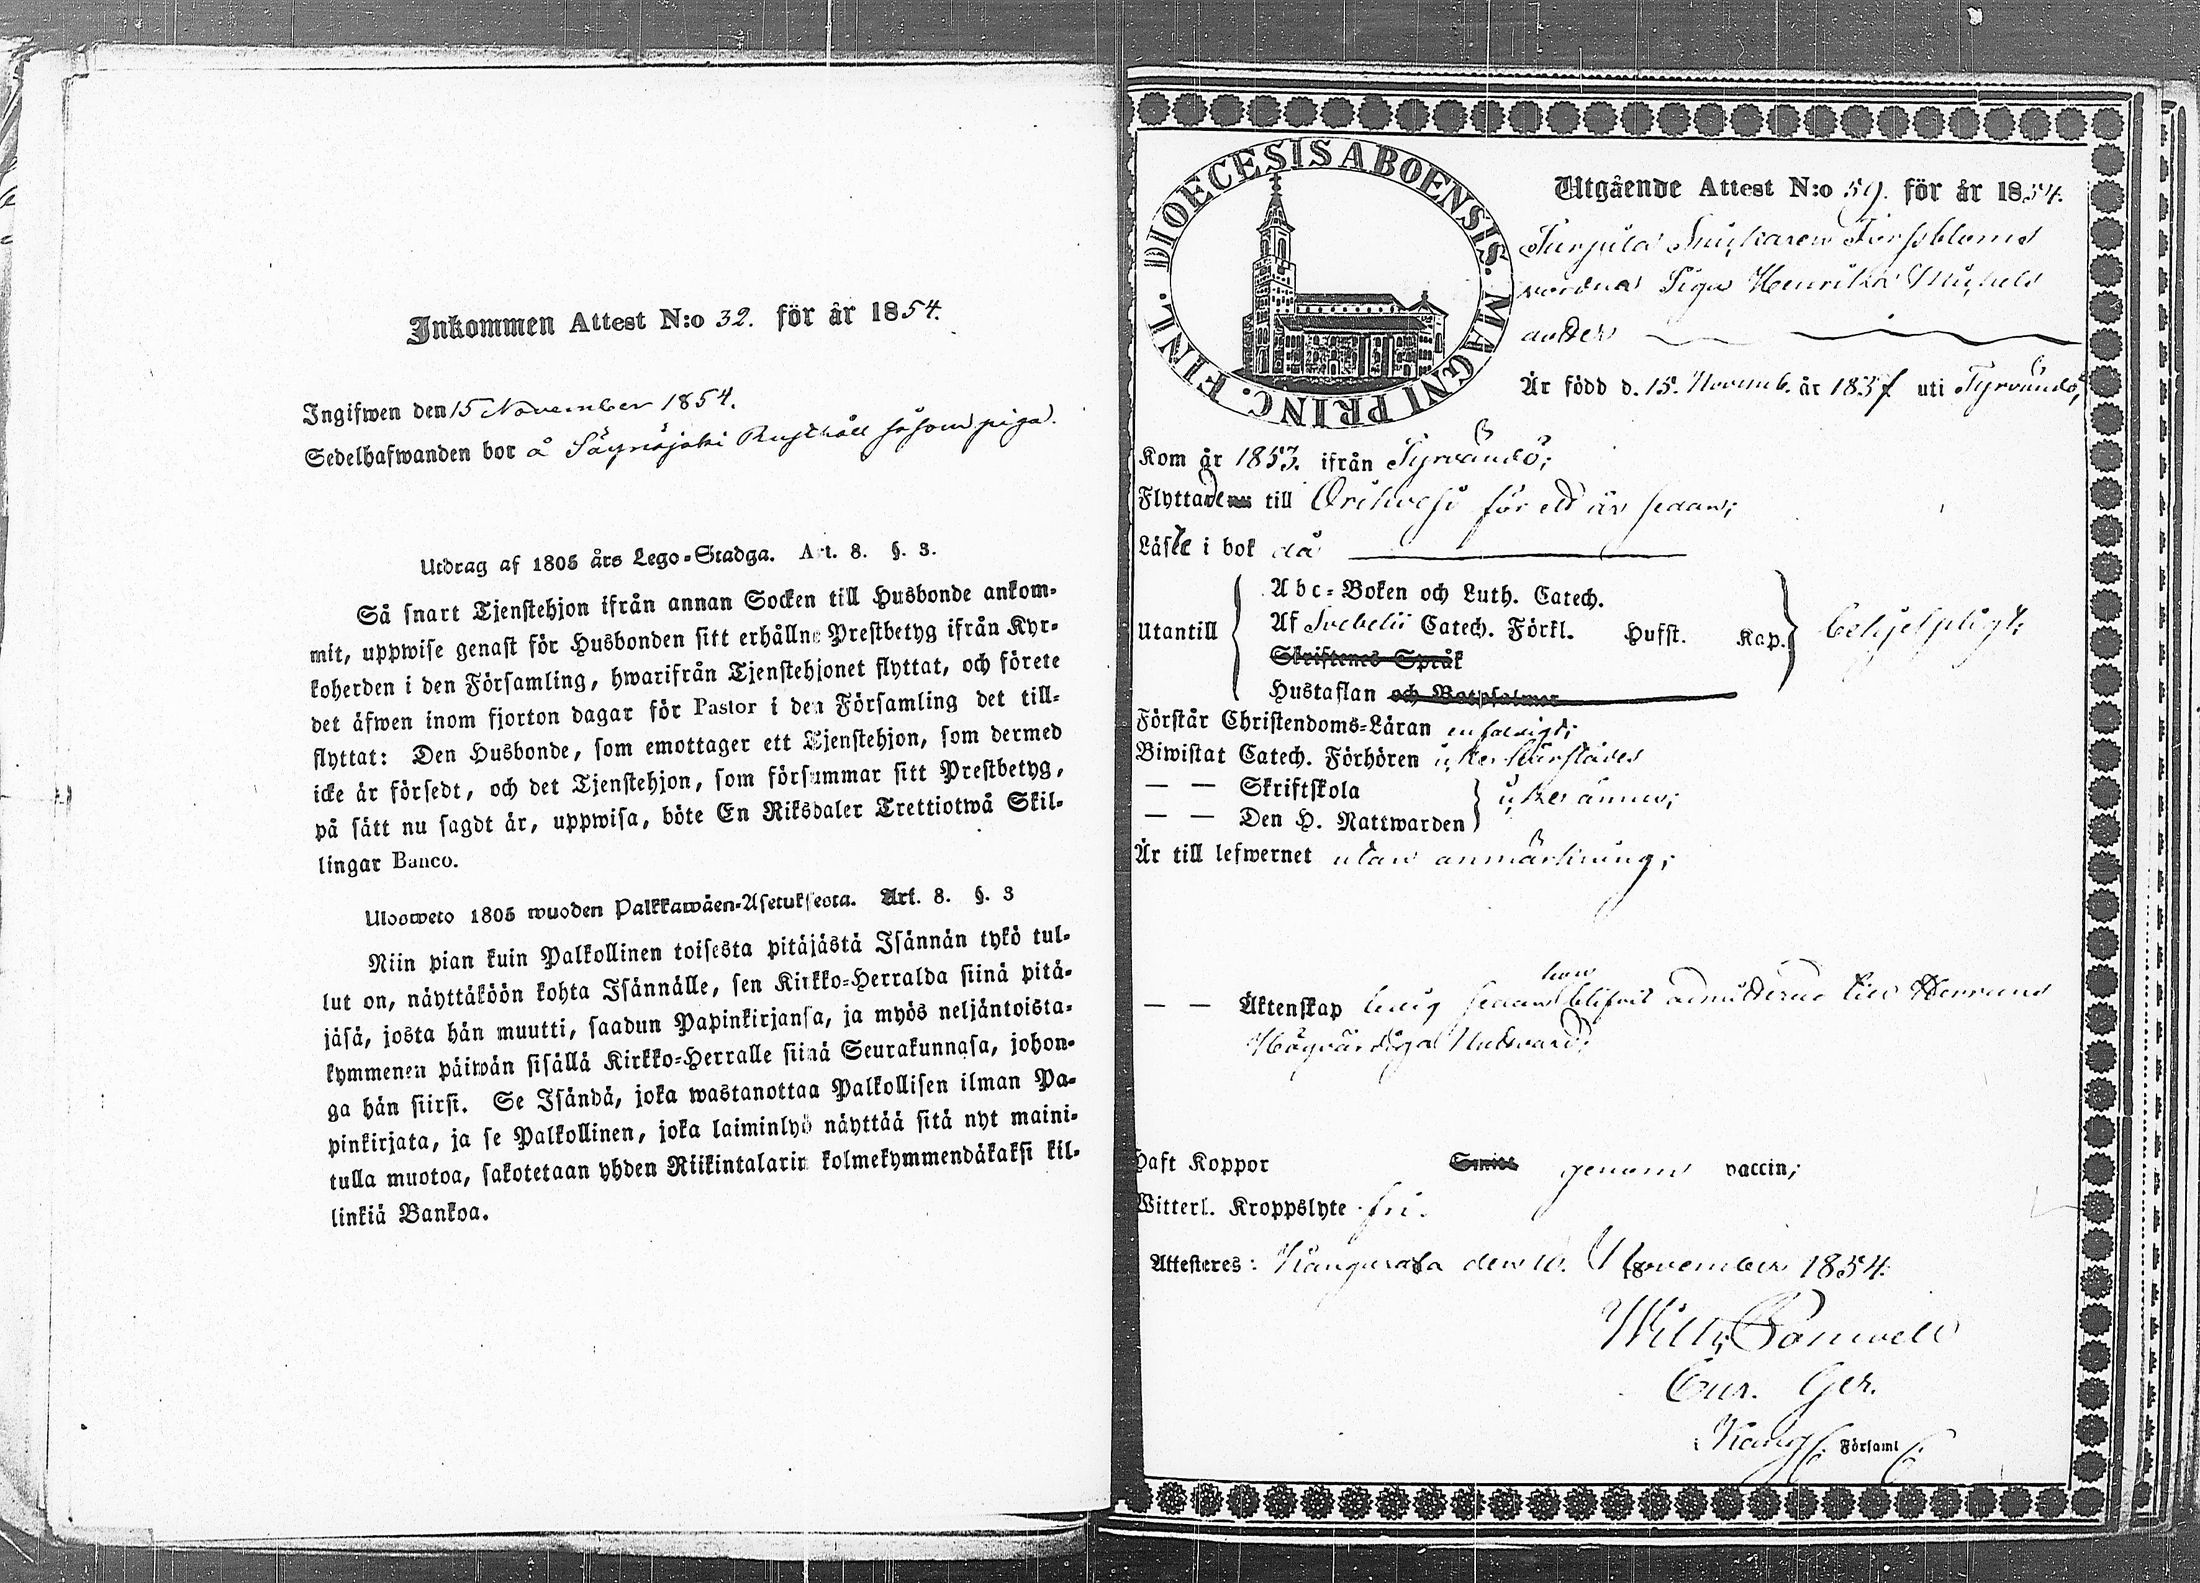 Inkommen Attest N:o 32. för år 1854.
Ingifwen den 15 November 1854.
Sedelhafwanden bor å Säynäjoki Rusthåll såsom piga.
Utdrag af 1805 års Lego-Stadga. Art. 8. §. 3.
Så snart Tjenstehjon ifrån annan Socken till Husbonde ankom-
mit, uppwise genast för Husbonden sitt erhållne Prestbetyg ifrån Kyr-
koherden i den Församling, hwarifrån Tjenstehjonet flyttat, och förete
det äfwen inom fjorton dagar för Pastor i den Församling det till-
flyttat: Den Husbonde, som emottager ett Tjenstehjon, som dermed
icke är försedt, och det Tjenstehjon, som försummar sitt Prestbetyg,
på sätt nu sagdt är, uppwisa, böte En Riksdaler Trettiotwå Skil-
lingar Banco.
Ulosweto 1805 wuoden Palkkawäen-Asetuksesta. Art. 8. §. 3
Niin pian kuin Palkollinen toisesta pitäjästä Isännän tykö tul-
lut on, näyttäköön kohta Isännälle, sen Kirkko-Herralda siinä pitä-
jäsä, josta hän muutti, saadun Papinkirjansa, ja myös neljäntoista-
kymmenen päiwän sisällä Kirkko-Herralle siinä Seurakunnasa, johon-
ga hän siirsi. Se Isändä, joka wastanottaa Palkollisen ilman Pa-
pinkirjata, ja se Palkollinen, joka laiminlyö näyttää sitä nyt maini-
tulla muotoa, sakotetaan yhden Riikintalarin kolmekymmendäkaksi kil-
linkiä Bankoa.
DIOECESIS ABOENSIS. MAGNI PRINC. FINL.
Utgående Attest N:o 59. för år 1854.
Forssbloms
Piga Henrika Michels
dotter
Är född d. 15. Novemb. år 1837 uti Tyrvändö,
Kom år 1853. ifrån Tyrvändö;
Flyttade till Orihvesi för ett år sedan;
Läste i bok då
Utantill
Abc-Boken och Luth. Catech.
Af Svebelii Catech. Förkl. Husst. Kap. behjelpligt;
Skriftenes Språk
Hustaflan och Botpsalmer
Förstår Christendoms-Läran enfaldigt;
Biwistat Catech. Förhören icke härstädes
— — Skriftskola
— — Den H. Nattwarden icke ännu;
Är till lefwernet utan anmärkning;
— — Äktenskap ledig sedan hon blifvit admitterad till Herrans
Högvärdiga Nattvard;
Haft Koppor Smitt genom vaccin;
Witterl. Kroppslyte fri.
Attesteres: Kangasala den 10. November 1854.
Wilh.
Cur. Ger.
i Kang. Församl